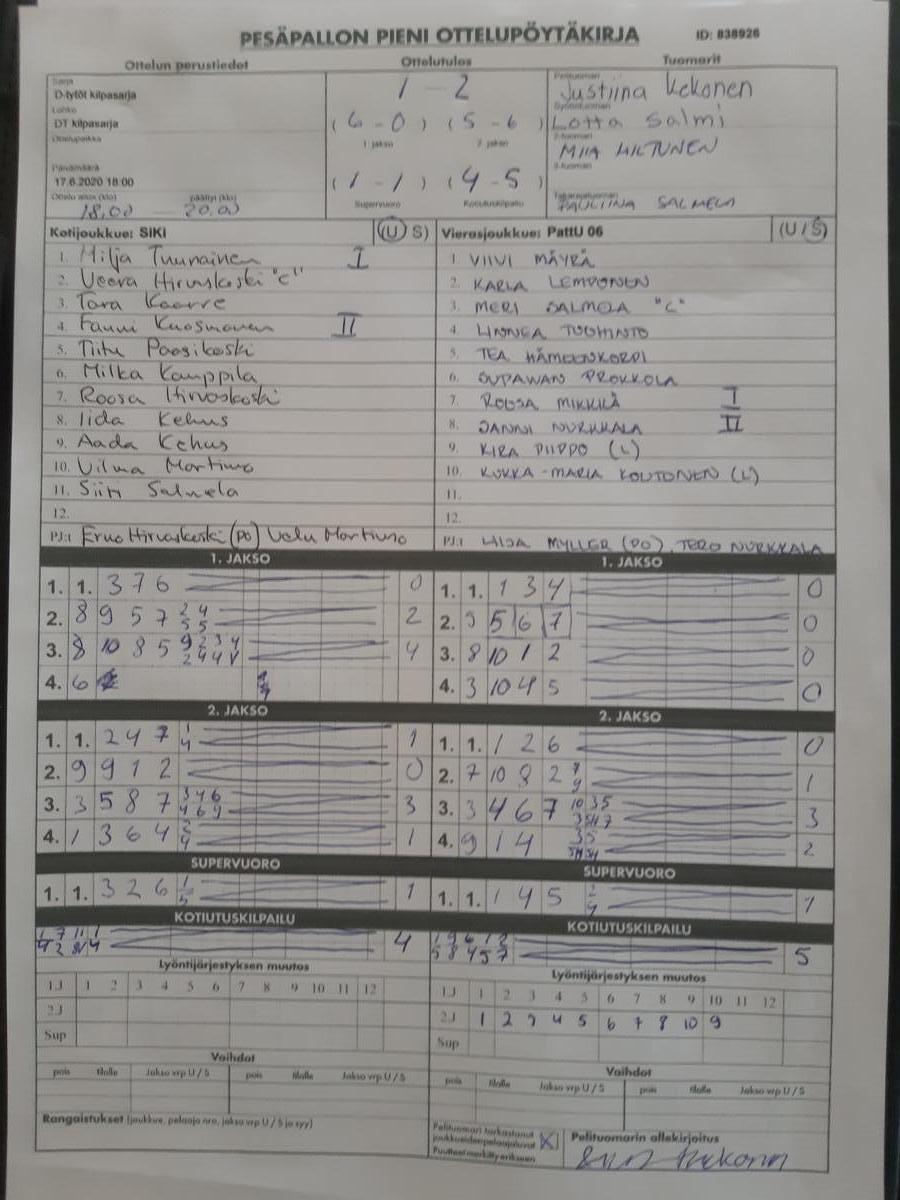 PESÄPALLON PIENI OTTELUPÖYTÄKIRJA ID: 838926
Ottelun perustiedot Ottelutulos Tuomarit
Sarja
D-tytöt kilpasarja
Lohko
DT kilpasarja
Ottelupaikka
Päivämäärä
17.6.2020 18:00
Ottelu alkoi (klo) päättyi (klo)
18,00 – 20.00
1 – 2
(6 – 0) (5 – 6)
1. jakso 2. jakso
(1 – 1) (4 – 5)
Supervuoro Kotiutuskilpailu
Pelituomari
Justiina Kekonen
Syöttötuomari
Lotta Salmi
2-tuomari
MIIA HILTUNEN
3-tuomari
Takarajatuomari
PAULIINA SALMELA
Kotijoukkue: SIKI (U S)
1. Milja Tuunainen I
2. Veera Hirvaskoski "C"
3. Tara Kaarre
4. Fanni Kuosmanen II
5. Tiitu Paasikoski
6. Milka Kauppila
7. Roosa Hirvaskoski
8. Iida Kehus
9. Aada Kehus
10. Vilma Martimo
11. Siiri Salmela
12.
PJ:t Erno Hirvaskoski (PO) Velu Martimo
Vierasjoukkue: PattU 06 (U / S)
1. VIIVI MÄYRÄ
2. KARLA LEMPONEN
3. MERI SALMELA "C"
4. LINNEA TUOHINTO
5. TEA HÄMEENKORPI
6. SUPAWAN PROKKOLA
7. ROOSA MIKKILÄ I
8. JANNI NURKKALA II
9. KIRA PIIPPO (L)
10. KUKKA-MARIA KOUTONEN (L)
11.
12.
PJ:t LIISA MYLLER (PO), TERO NURKKALA
1. JAKSO
1. 1. 3 7 6 0
2. 8 9 5 7 2 4 5 5 2
3. 8 10 8 5 9 2 3 4 2 4 4 V 4
4. 6
1. JAKSO
1. 1. 1 3 4 0
2. 5 6 7 0
3. 8 10 1 2 0
4. 3 10 4 5 0
2. JAKSO
1. 1. 2 4 7 1 4 1
2. 9 9 1 2 0
3. 3 5 8 7 3 4 6 4 6 9 3
4. 1 3 6 4 2 4 1
2. JAKSO
1. 1. 1 2 6 0
2. 7 10 8 2 9 1
3. 3 4 6 7 10 3 5 3
4. 9 1 4 3 5 2
SUPERVUORO
1. 1. 3 2 6 1 5 1
SUPERVUORO
1. 1. 1 4 5 2 4 1
KOTIUTUSKILPAILU
4
KOTIUTUSKILPAILU
5
Lyöntijärjestyksen muutos
1J 1 2 3 4 5 6 7 8 9 10 11 12
2J
Sup
Lyöntijärjestyksen muutos
1J 1 2 3 4 5 6 7 8 9 10 11 12
2J 1 2 3 4 5 6 7 8 10 9
Sup
Vaihdot
pois tilalle Jakso vrp U / S pois tilalle Jakso vrp U / S
Vaihdot
pois tilalle Jakso vrp U / S pois tilalle Jakso vrp U / S
Rangaistukset (joukkue, pelaaja nro, jakso vrp U / S ja syy)
Pelituomari tarkastanut
joukkueiden pelaajaluvat X
Puutteet merkitty erikseen
Pelituomarin allekirjoitus